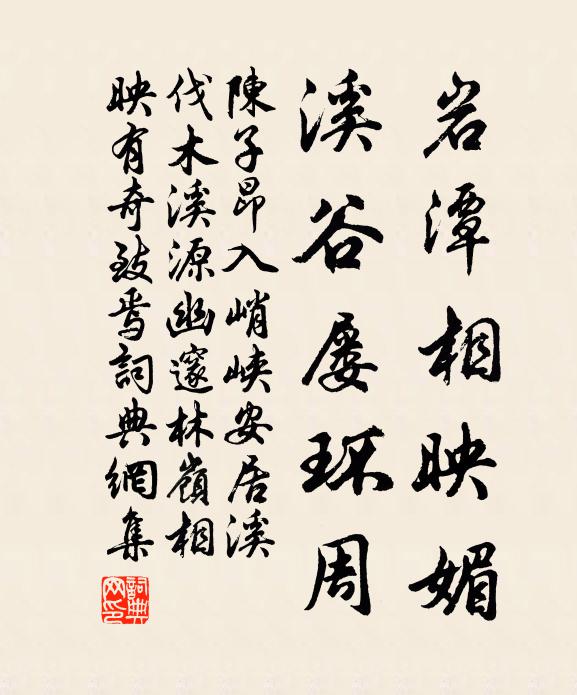 岩潭相映媚
溪谷屡环周
陳子昂入峭峽安居溪
伐木溪源幽邃林嶺相
映有奇致焉詞典網集
詞典網印